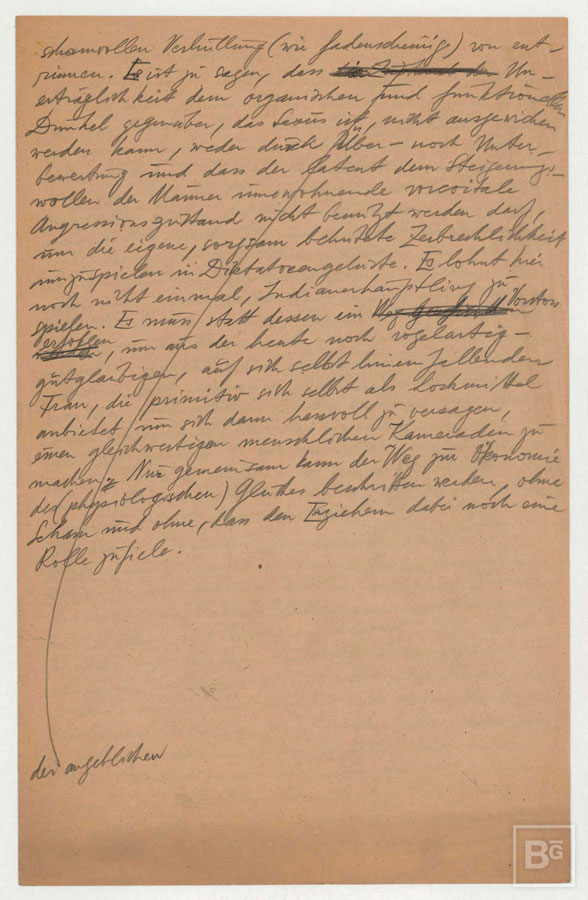 schamvollen Verhüllung (wie fadenscheinig) von ent-
rinnen. Es ist zu sagen, dass die Un-
erträglichkeit dem organischen und funktionellen
Dunkel gegenüber, das Sexus ist, nicht ausgewichen
werden kann, weder durch Über- noch Unter-
bewertung und dass der latent dem Steigerungs-
wollen der Männer innewohnende
Angressionszustand nicht benützt werden darf,
um die eigene, sorgsam behütete Zerbrechlichkeit
umzuspielen in Diktatorengelüste. Es lohnt hier
noch nicht einmal, Indianerhäuptling zu
spielen. Es muss statt dessen ein Vorstoss
erfolgen, um aus der heute noch vogelartig-
gutgläubigen, auf sich selbst hineinfallenden
Frau, die primitiv sich selbst als Lockmittel
anbietet um sich dann hassvoll zu versagen,
einen gleichwertigen menschlichen Kameraden zu
machen. Nur gemeinsam kann der Weg zur Ökonomie
des (physiologischen) Glückes beschritten werden, ohne
Scham und ohne, dass den Erziehern dabei noch eine
Rolle zufiele.
der angeblichen
BG